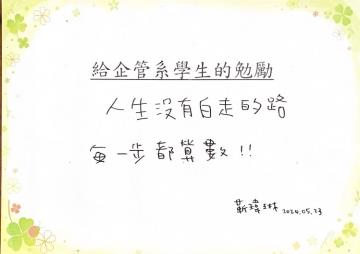 給企管系學生的勉勵
人生沒有白走的路
每一步都算數!!
靳瑋琳 2024.05.23